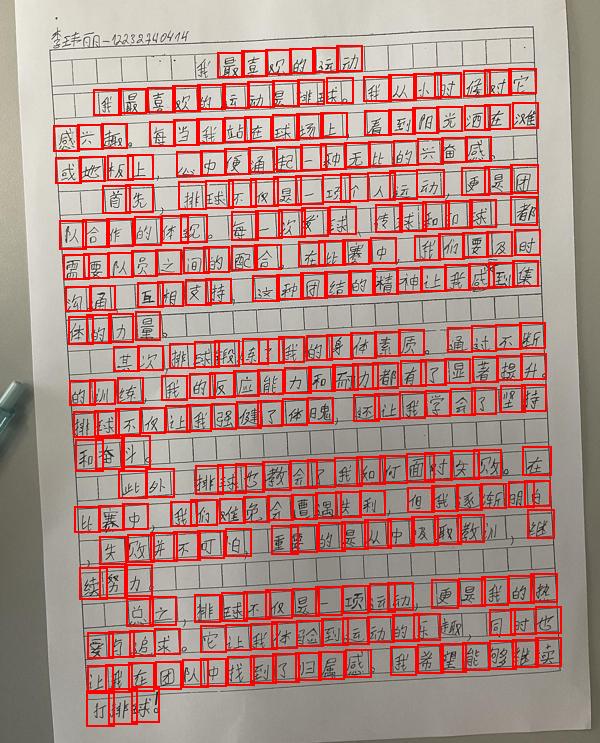 李玮丽-12232740414
我最喜欢的运动
我最喜欢的运动是排球。我从小时候对它
感兴趣。每当我站在球场上,看到阳光洒在滩
或地板上,心中便涌起一种无比的兴奋感。
首先,排球不仅是一项个人运动,更是团
队合作的体现。每一次发球、传球和扣球 都
需要队员之间的配合,在比赛中,我们要及时
沟通 互相支持,这种团结的精神让我感到集
体的力量。
其次,排球锻炼了我的身体素质。通过不断
的训练,我的反应能力和耐力都有了显著提升。
排球不仅让我强健了体魄,还让我学会了坚持
和奋斗。
此外 排球也教会了我如何面对失败。在
比赛中,我们难免会遭遇失利,但我逐渐明白
,失败并不可怕,重要的是从中汲取教训,继
续努力。
总之,排球不仅是一项运动,更是我的热
爱与追求。它让我体验到运动的乐趣,同时也
让我在团队中找到了归属感。我希望能够继续
打排球!